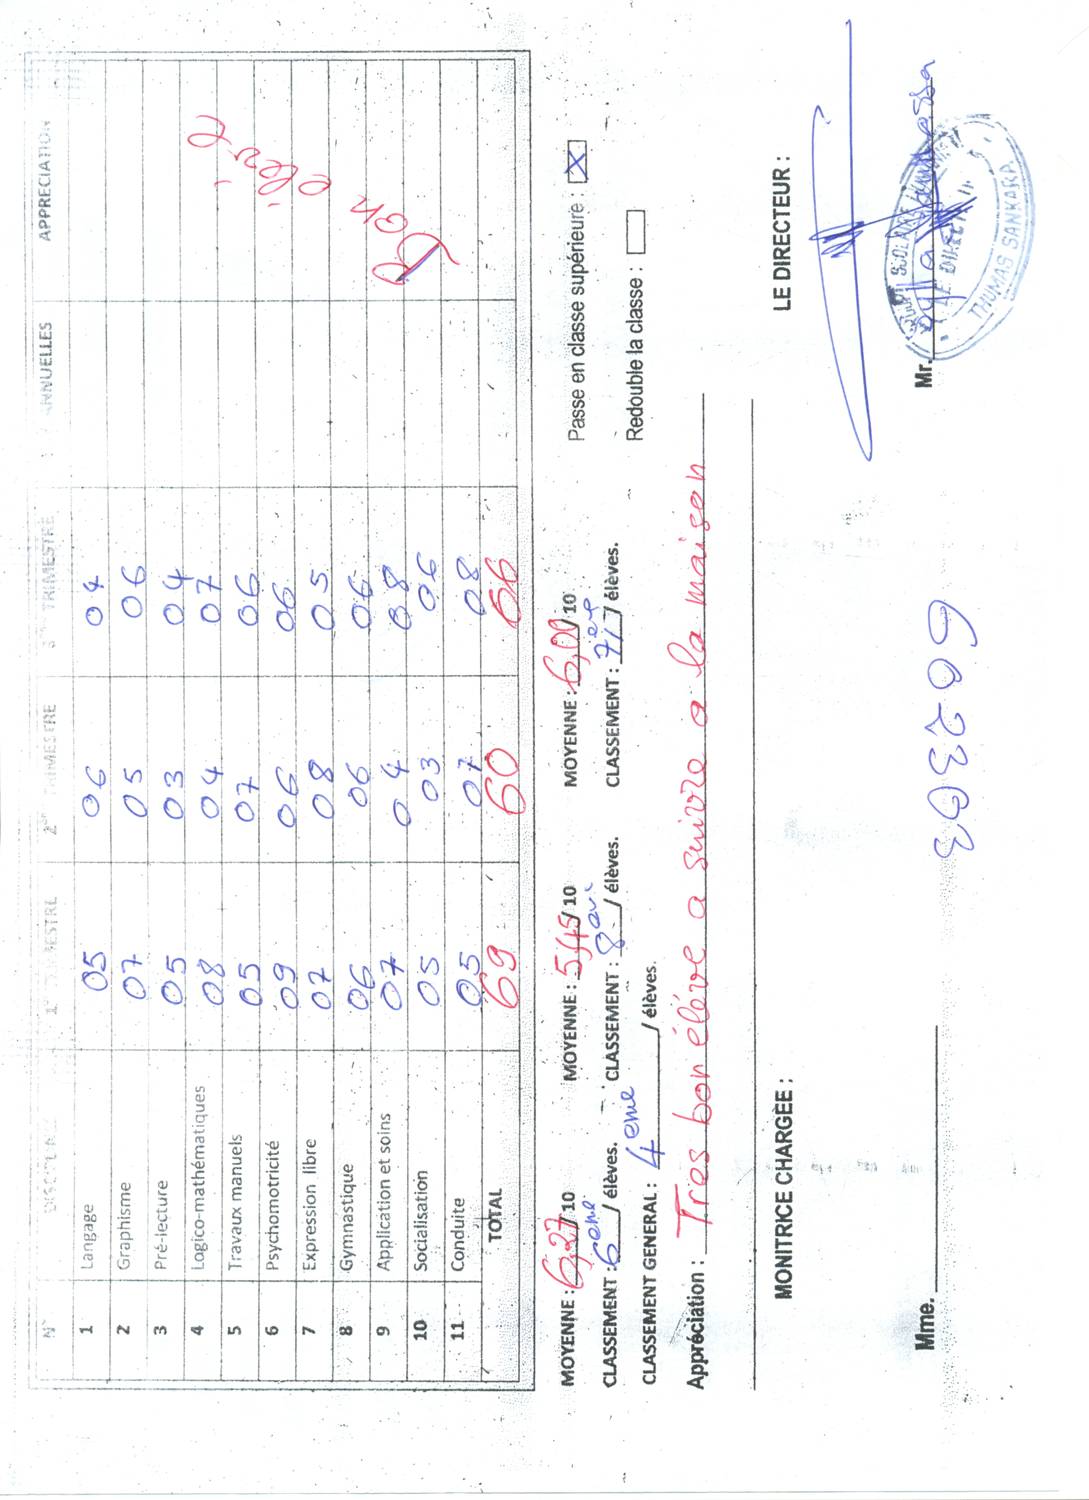 N° DISCIPLINE 1er TRIMESTRE 2em TRIMESTRE 3em TRIMESTRE ANNUELLES APPRECIATION
1 Langage 05 06 04
2 Graphisme 07 05 06
3 Pré-lecture 05 03 04
4 Logico-mathématiques 08 04 07
5 Travaux manuels 05 07 06
6 Psychomotricité 09 06 06
7 Expression libre 07 08 05
8 Gymnastique 06 06 06
9 Application et soins 07 04 08
10 Socialisation 05 03 06
11 Conduite 05 07 08
TOTAL 69 60 66
Bon élève
MOYENNE : 6,27/10 MOYENNE : 5,45/10 MOYENNE : 6,00/10 Passe en classe supérieure : X
CLASSEMENT : 6eme / élèves. CLASSEMENT : 8 / élèves. CLASSEMENT : 7 / élèves. Redouble la classe :
CLASSEMENT GENERAL : 4eme / élèves.
Appréciation : Tres bon élève a suivre a la maison
MONITRICE CHARGÈE : LE DIRECTEUR :
Mme. Mr.
LE DIRECTEUR
THOMAS SANKARA